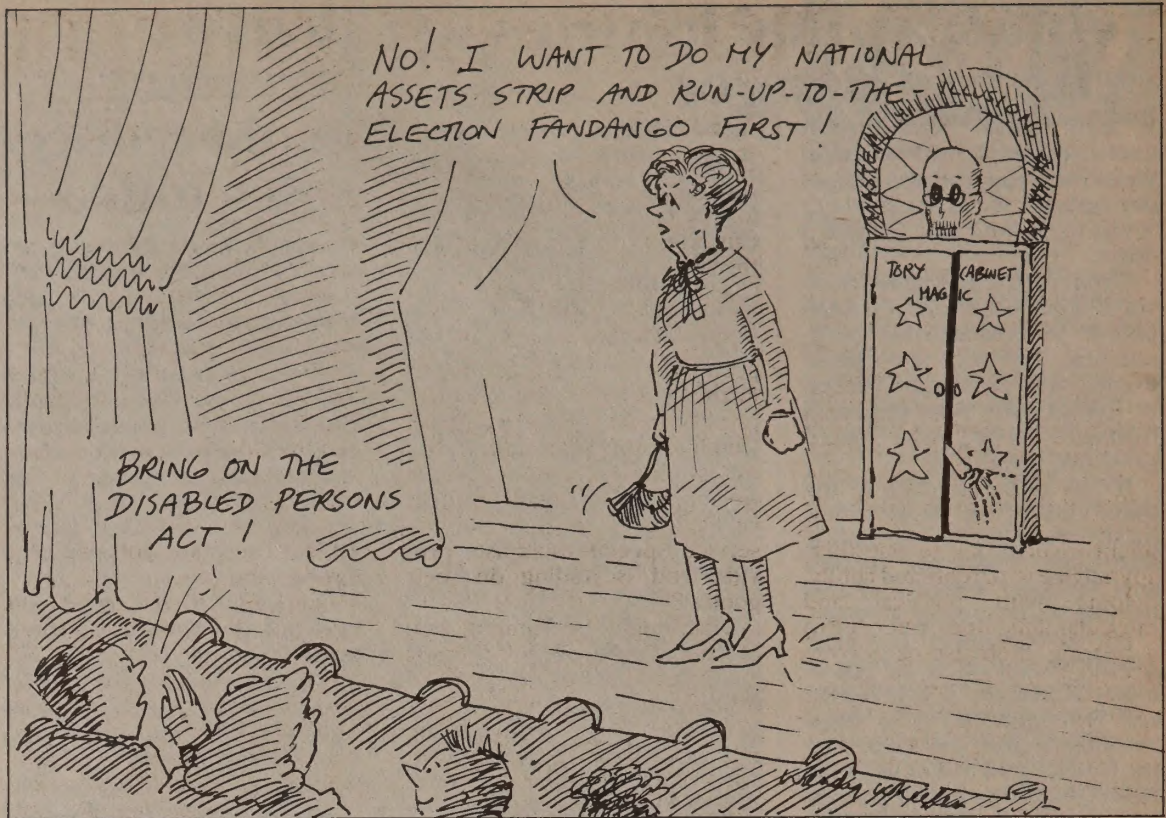 NO! I WANT TO DO MY NATIONAL
ASSETS STRIP AND RUN-UP-TO-THE-
ELECTION FANDANGO FIRST!
MASTER OF ILLUSIONS
TORY CABINET
MAGIC
BRING ON THE
DISABLED PERSONS
ACT!
Wendy